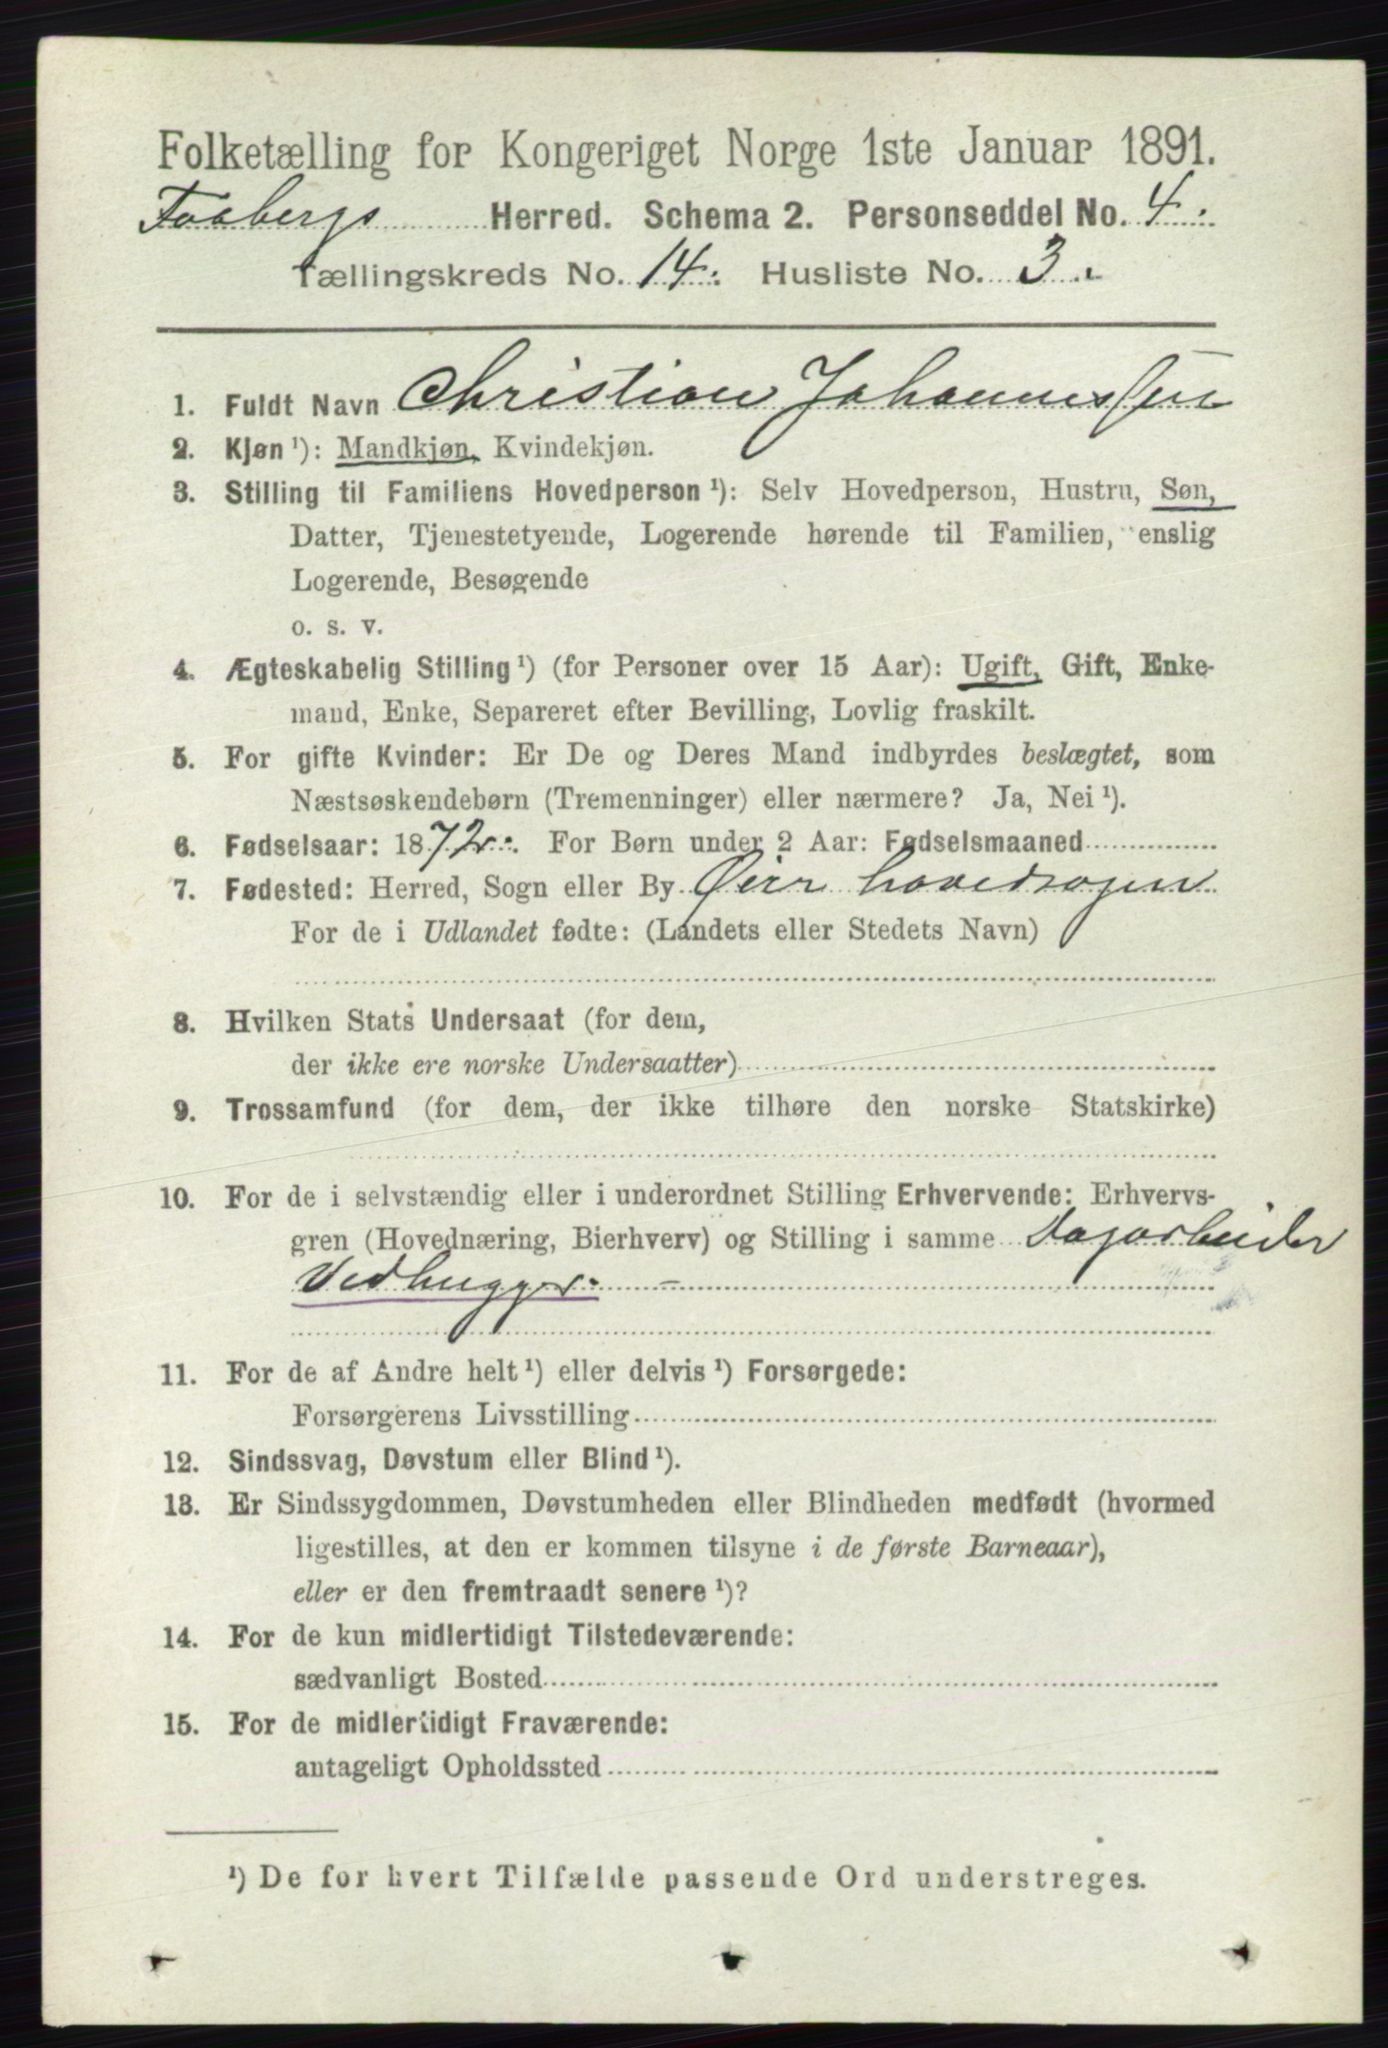 Folketælling for Kongeriget Norge 1ste Januar 1891.
Faabergs Herred. Schema 2. Personseddel No. 4.
Tællingskreds No. 14. Husliste No. 3.
1. Fuldt Navn Christian Johannessen
2. Kjøn ¹): Mandkjøn, Kvindekjøn.
3. Stilling til Familiens Hovedperson ¹): Selv Hovedperson, Hustru, Søn,
Datter, Tjenestetyende, Logerende hørende til Familien, enslig
Logerende, Besøgende
o. s. v.
4. Ægteskabelig Stilling ¹) (for Personer over 15 Aar): Ugift, Gift, Enke-
mand, Enke, Separeret efter Bevilling, Lovlig fraskilt.
5. For gifte Kvinder: Er De og Deres Mand indbyrdes beslægtet, som
Næstsøskendebørn (Tremenninger) eller nærmere? Ja, Nei ¹).
6. Fødselsaar: 1872. For Børn under 2 Aar: Fødselsmaaned
7. Fødested: Herred, Sogn eller By Øier hovedsogen
For de i Udlandet fødte: (Landets eller Stedets Navn)
8. Hvilken Stats Undersaat (for dem,
der ikke ere norske Undersaatter)
9. Trossamfund (for dem, der ikke tilhøre den norske Statskirke)
10. For de i selvstændig eller i underordnet Stilling Erhvervende: Erhvervs-
gren (Hovednæring, Bierhverv) og Stilling i samme Dagarbeider
Vedhugger. -
11. For de af Andre helt ¹) eller delvis ¹) Forsørgede:
Forsørgerens Livsstilling
12. Sindssvag, Døvstum eller Blind ¹).
13. Er Sindssygdommen, Døvstumheden eller Blindheden medfødt (hvormed
ligestilles, at den er kommen tilsyne i de første Barneaar),
eller er den fremtraadt senere ¹)?
14. For de kun midlertidigt Tilstedeværende:
sædvanligt Bosted
15. For de midlertidigt Fraværende:
antageligt Opholdssted
¹) De for hvert Tilfælde passende Ord understreges.